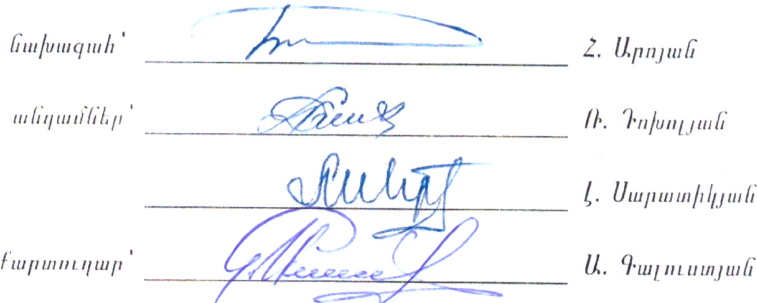 նախագահ՝ Հ. Արոյան
անդամներ՝ Ռ. Դոխոլյան
Լ. Սարատիկյան
քարտուղար՝ Ա. Գալուստյան